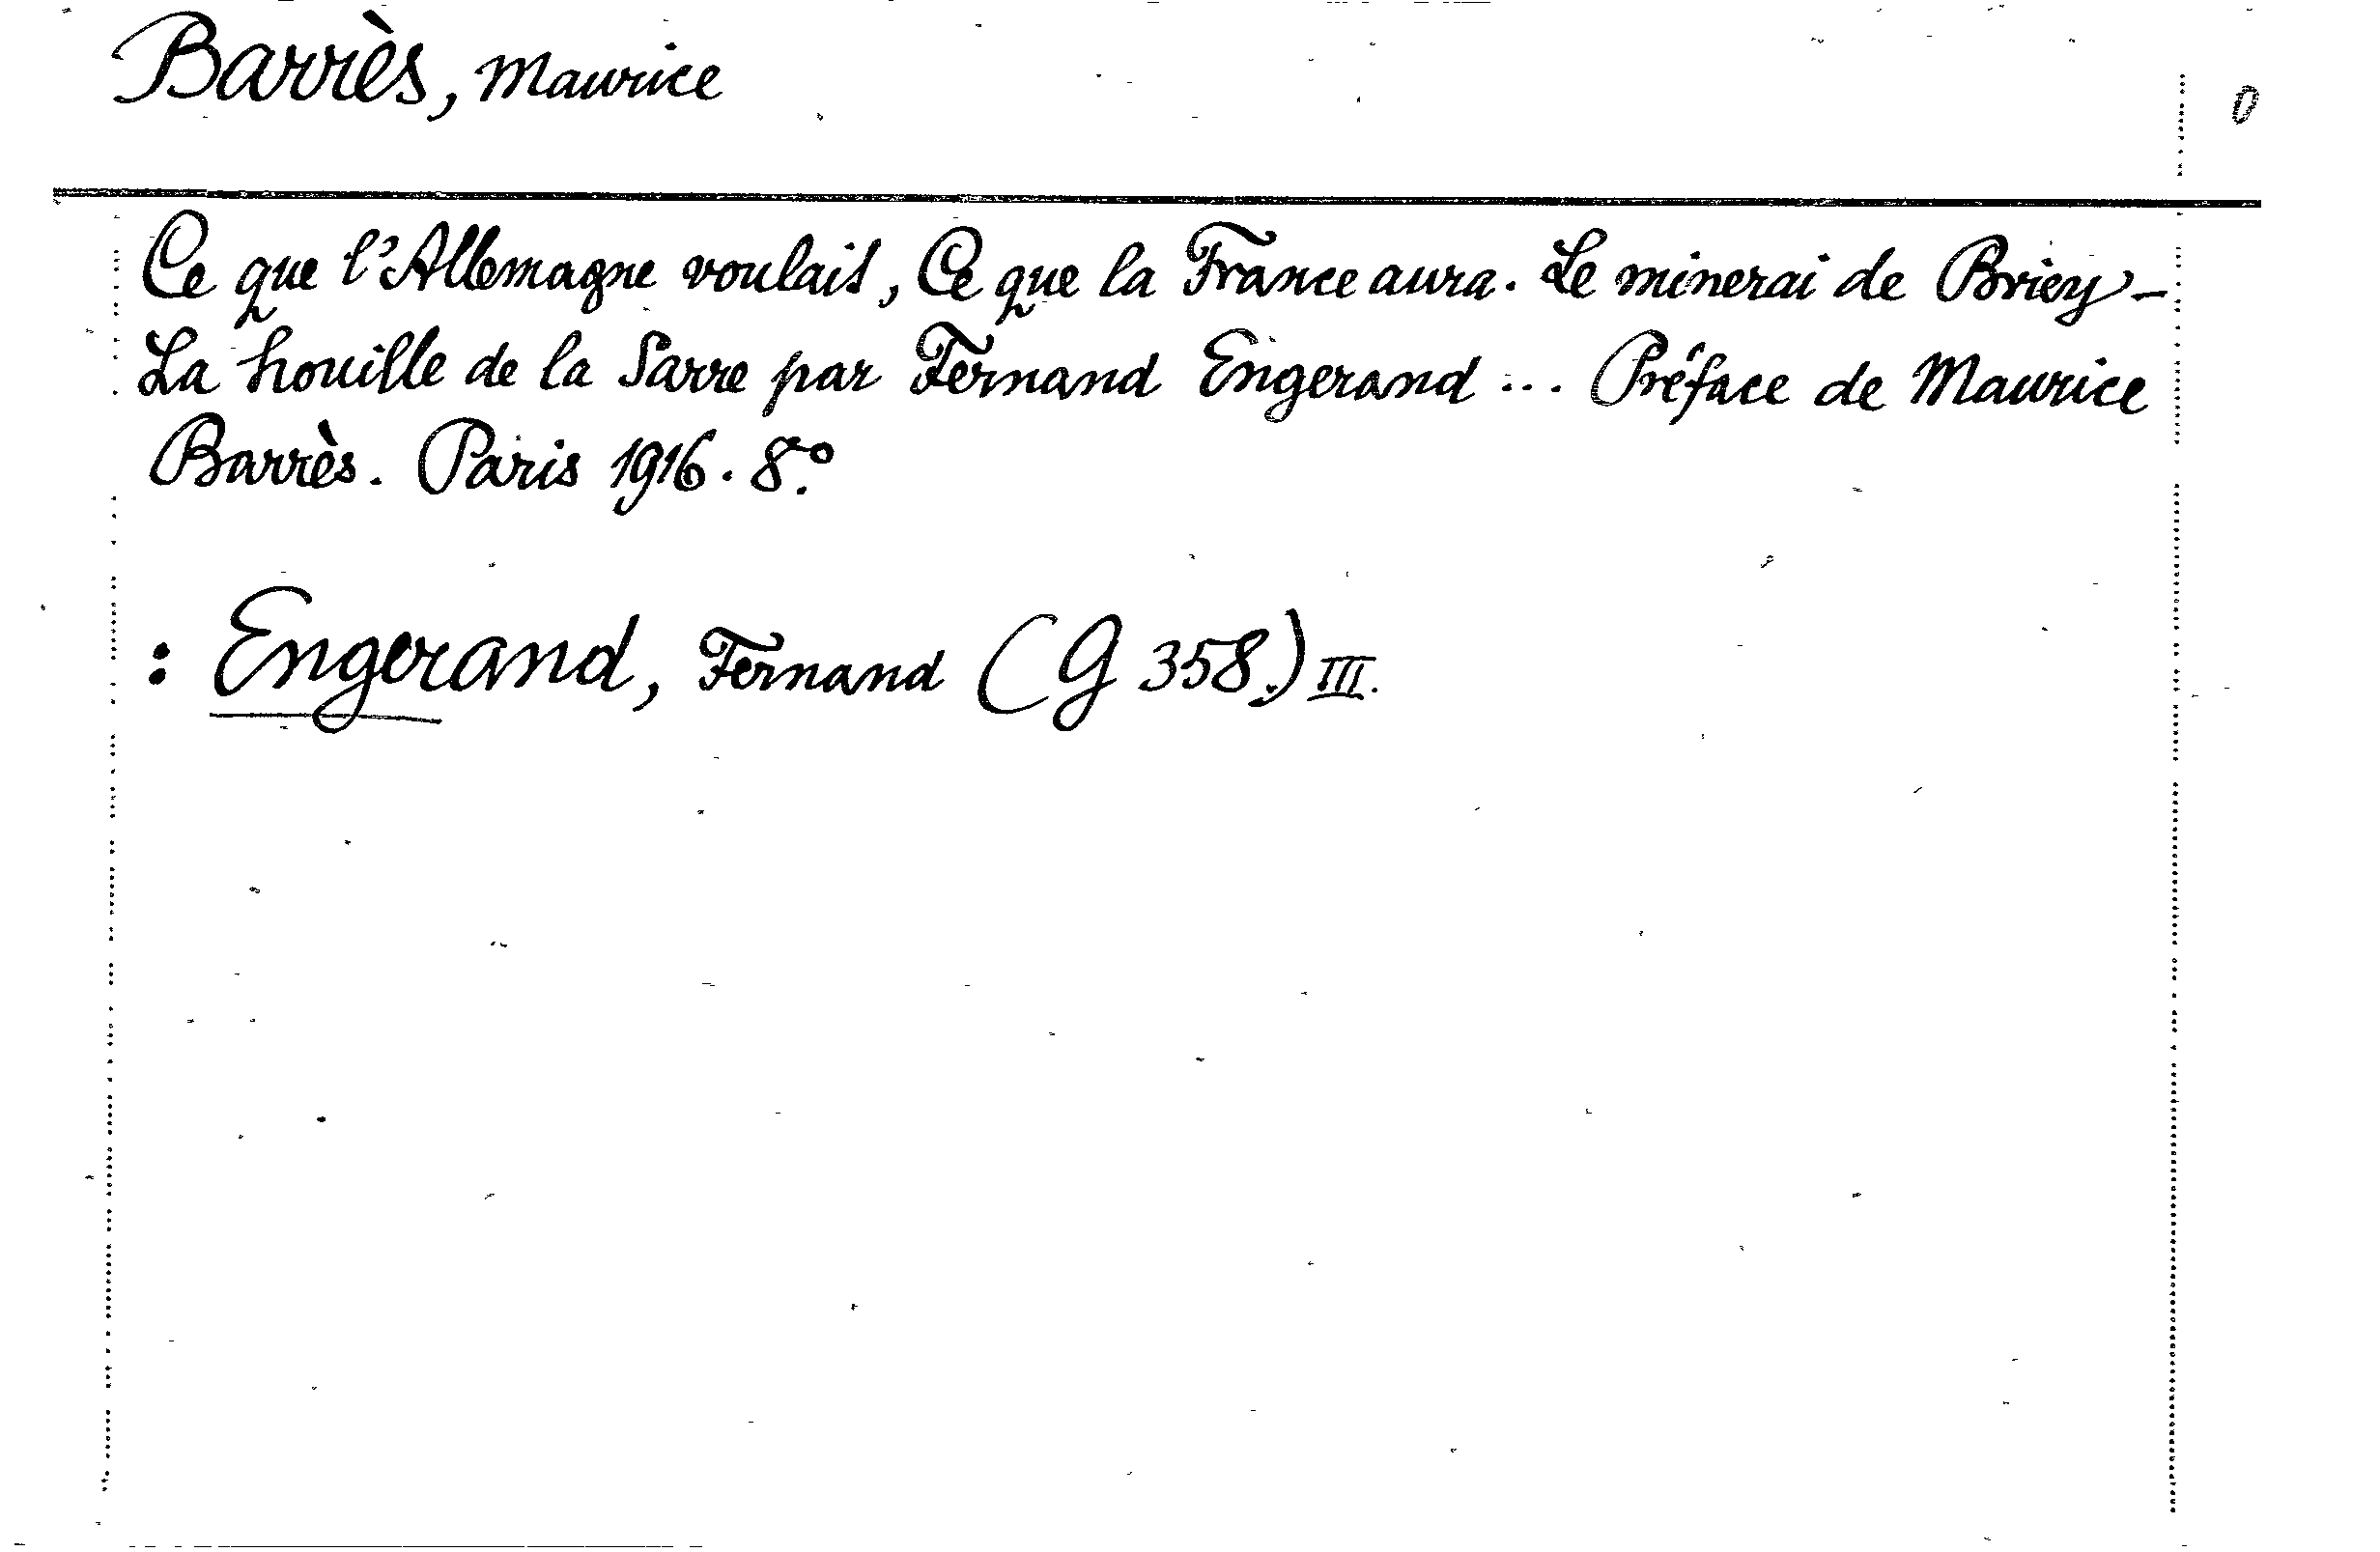 Barrès, Maurice
0
Ce que l'Allemagne voulait, Ce que la France aura. Le minerai de Briey -
La houille de la Sarre par Fernand Engerand ... Préface de Maurice
Barrès. Paris 1916. 8°.
: Engerand, Fernand (G 358.) III.